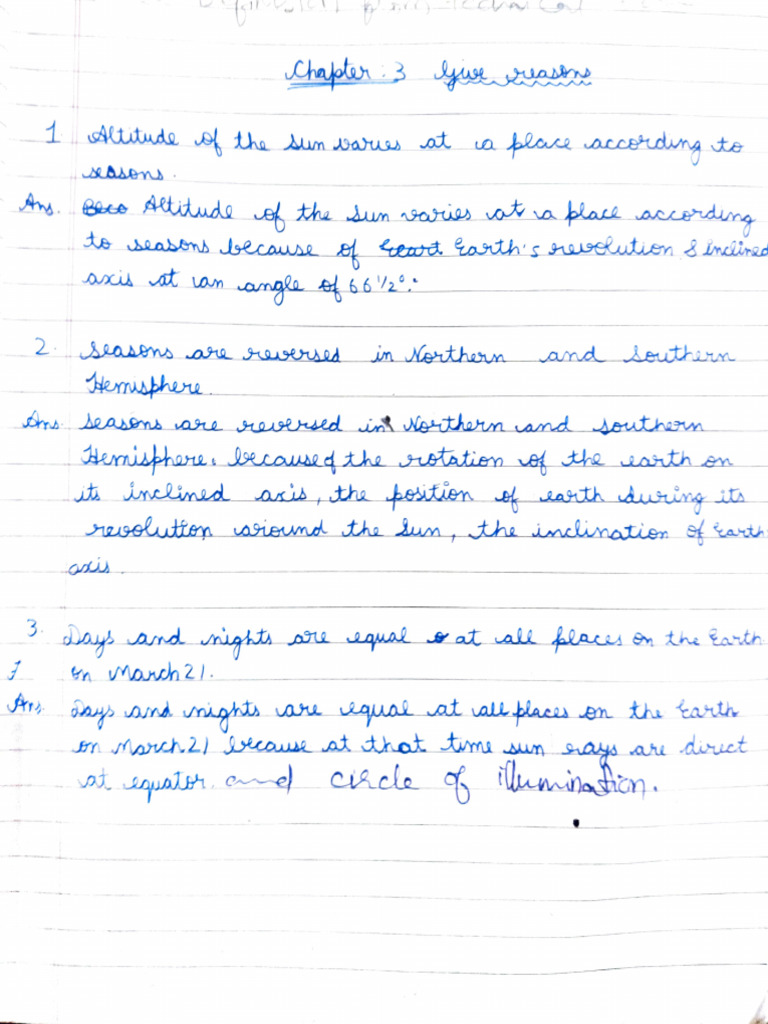 Definition from technical
Chapter: 3 Give reasons
1 Altitude of the sun varies at a place according to
seasons.
Ans. Beco Altitude of the sun varies at a place according
to seasons because of Eeart Earth's revolution & inclined
axis at an angle of 66 1/2°.
2. Seasons are reversed in Northern and Southern
Hemisphere.
Ans. Seasons are reversed in Northern and southern
Hemisphere. because of the rotation of the earth on
its inclined axis, the position of earth during its
revolution around the Sun, the inclination of Earth
axis.
3. Days and nights are equal at all places on the Earth
on March 21.
Ans. Days and nights are equal at all places on the Earth
on March 21 because at that time sun rays are direct
at equator. and circle of illumination.